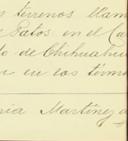 terrenos llam
Patos en el Ca
do de Chihuahua
en los térmi
ria Martínez d